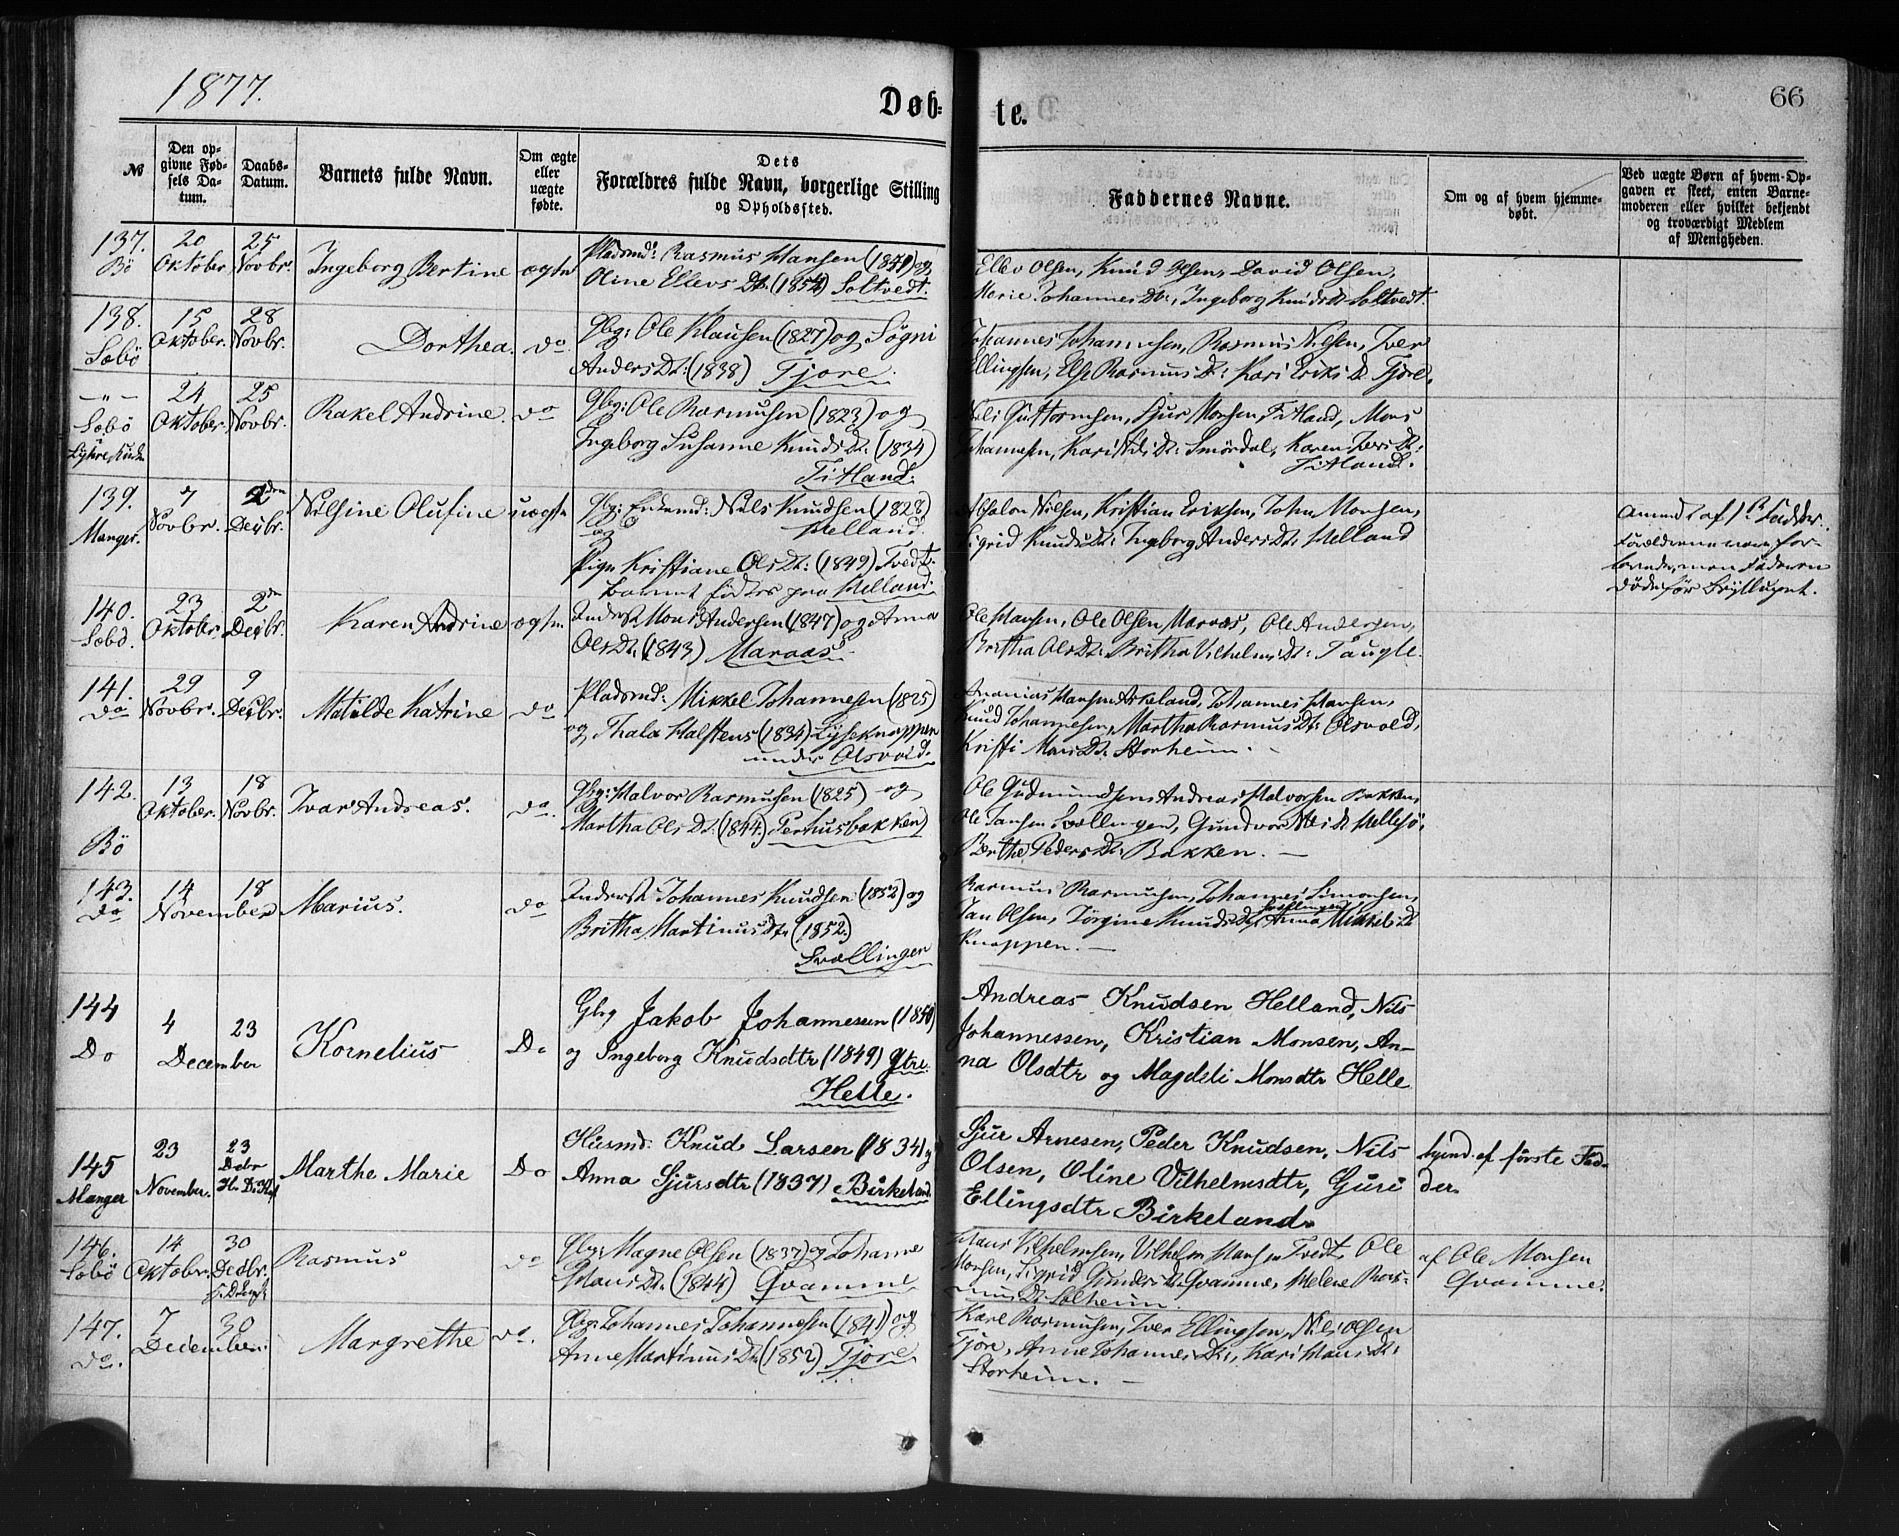 1877.
Døb-
te.
66
№
Den op-
givne Fød-
sels Da-
tum.
Daabs-
Datum.
Barnets fulde Navn.
Om ægte
eller
uægte
fødte.
Dets
Forældres fulde Navn, borgerlige Stilling
og Opholdssted.
Faddernes Navne.
Om og af hvem hjemme-
døbt.
Ved uægte Børn af hvem Op-
gaven er skeet, enten Barne-
moderen eller hvilket bekjendt
og troværdigt Medlem
af Menigheden.
137. 20 25
Bö Oktober Novbr. Ingeborg Bertine ægte
Pladsmd: Rasmus Hansen og
Oline Ellevs Dt. Soltvedt.
Ellev Olsen, Knud Olsen, David Olsen,
Marie Johannes Dt:, Ingeborg Knuds Dt Soltvedt.
138. 15 28
Sæbö Oktober. Novbr. Dorthea. do
Gbg: Ole Klausen (1827) og Sögni
Anders Dt: (1838) Tjore.
Johannes Johannesen, Rasmus Nilsen, Iver
Ellingsen, Else Rasmus Dt: Kari Eriks Dt Tjore.
-"- 24 25
Sæbö Oktober Novbr. Rakel Andrine. do
Gbg: Ole Rasmusen (1823) og
Ingeborg Susanne Knuds Dt. (1834)
Titland.
Nils Guttormsen, Sjur Monsen, Titland, Mons
Johannesen, Kari Nils Dt: Smördal, Karen Ivers Dt:
Titland.
139. 7 2den
Manger. Novbr. Decbr. Nilsine Olufine uægte
Gbg: Enkemd: Nils Knudsen (1828)
og Helland.
Pige Kristiane Ols Dt: (1849) Tvedt.
Barnet födtes paa Helland.
Absalon Nilsen, Kristian Eriksen, John Monsen,
Sigrid Knuds Dt: Ingeborg Anders Dt: Helland
Anmeldt af 1ste Fadder.
Forældrene vare for-
lovede, men Faderen
döde för Bryllupet.
140. 23 2den
Sæbö. Oktober Decbr. Karen Andrine ægte.
Inderst Mons Andersen (1847) og Anna
Ols Dt. (1843) Maraas.
Ole Hansen, Ole Olsen Maraas, Ole Andersen,
Britha Ols Dt: Britha Vilhelms Dt: Taugle.
141. 29 9
do Novbr. Decbr. Matilde Katrine do
Pladsmd: Mikkel Johannesen (1825)
og Thala Halstens (1834) Lyseknappen
under Olsvold.
Ananias Hansen Askeland, Johannes Hansen,
Knud Johannesen, Martha Rasmus Dt: Olsvold,
Kristi Mons Dt. Storheim.
142. 13 18
Bö Oktober. Novbr. Ivar Andreas. do.
Gbg: Halvor Rasmusen (1825) og
Martha Ols Dt. (1844.) Perhusbakken
Ole Gudmundsen, Andreas Halvorsen Bakken,
Ole Hansen Svellingen, Gundvor Nils Dt Hellesö,
Berthe Peders Dt: Bakken.
143. 14 18
do November Marius. do
Inderst Johannes Knudsen (1852) og
Britha Martinus Dt. (1852.)
Svællingen
Rasmus Rasmusen, Johannes Simonsen,
Jan Olsen, Jörgine Knuds Dt Svellingen, Anna Mikkels Dt
Knappen.
144 4 23
Do December Kornelius Do
Gbg Jakob Johannessen (1850)
og Ingeborg Knudsdtr (1849) Ytre
Helle.
Andreas Knudsen Helland, Nils
Johannessen, Kristian Monsen, An-
na Olsdtr og Magdeli Monsdtr Helle
145 23 23
Manger November. Debr Marthe Marie Do
Husmd. Knud Larsen (1834) og
Anna Sjursdtr (1837) Birkeland.
Sjur Arnesen, Peder Knudsen, Nils
Olsen, Oline Vilhelmsdtr, Guri
Ellingsdtr Birkeland.
hjemd. af förste Fad-
der.
146. 14 30
Sæbö Oktober. Decbr. Rasmus do
Gbg: Magne Olsen (1837) og Johanne
Hans Dt. (1844) Qvamme
Hans Vilhelmsen, Vilhelm Hansen Tvedt, Ole
Monsen, Sigrid Gunders Dt Qvamme, Helene Ras-
mus Dt: Solheim.
af Ole Monsen
Qvamme.
147. 7 30
do. December. Margrethe do.
Gbg: Johannes Johannesen (1841) og
Anne Martinus Dt. (1852) Tjore
Karl Rasmusen, Iver Ellingsen, Nils Olsen
Tjore, Anne Johannes Dt:, Kari Hans Dt:
Storheim.